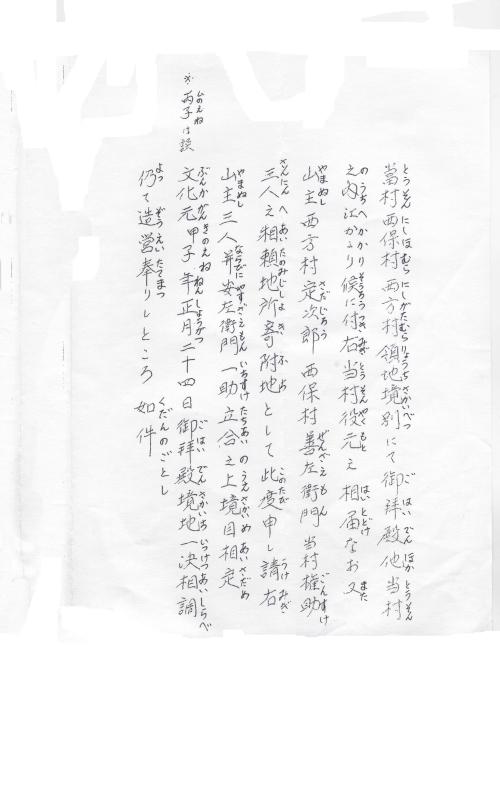 當村西保村西方村領地境別にて御拝殿他当村
之内江かゝり候に付右当村役元え相届なお又
山主西方村定次郎 西保村善左衛門 当村権助
三人え相頼地所寄附地として此度申し請右
山主三人并安左衛門一助立合之上境目相定
文化元甲子年正月二十四日御拝殿境地一決相調
仍て造営奉りしところ 如件
※丙子は誤